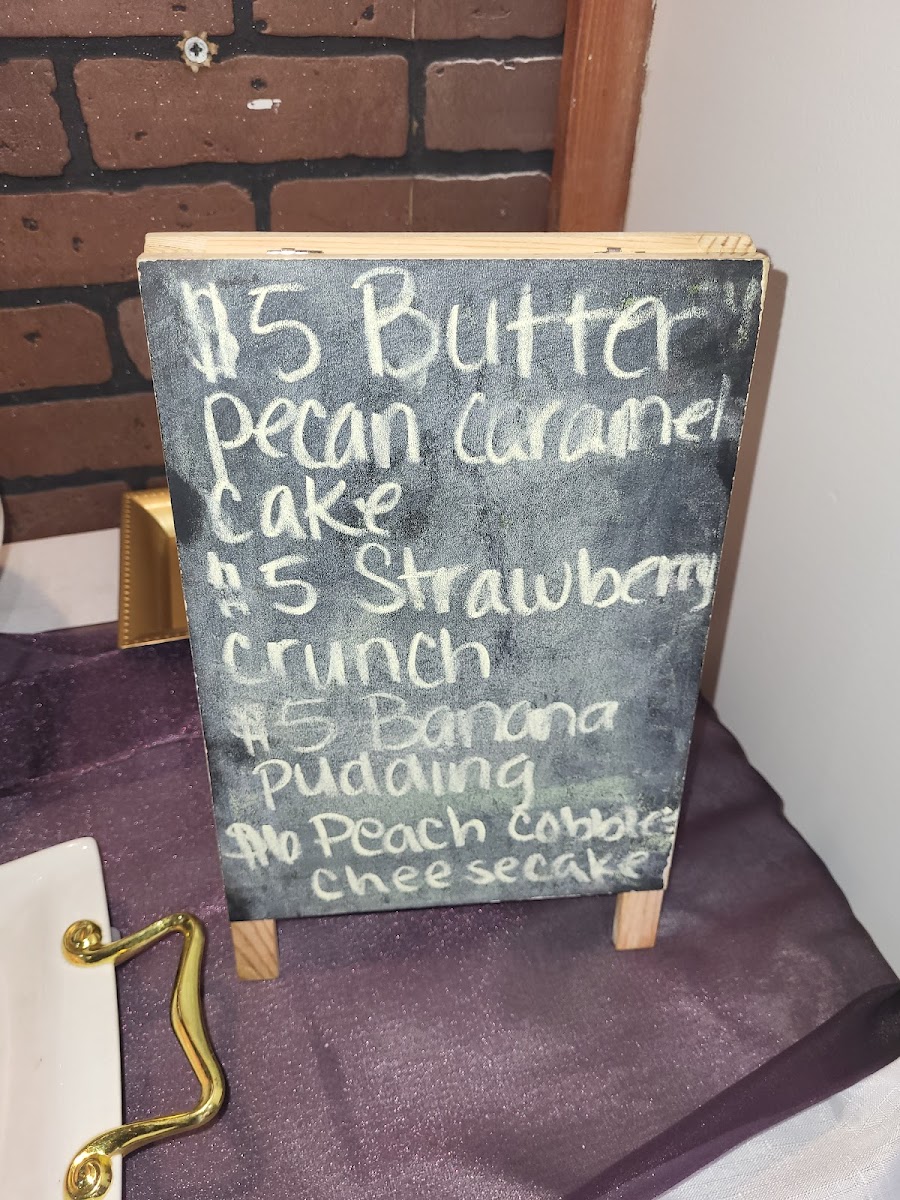 $5 Butter
pecan caramel
cake
$5 Strawberry
crunch
$5 Banana
pudding
$6 Peach cobbler
cheesecake